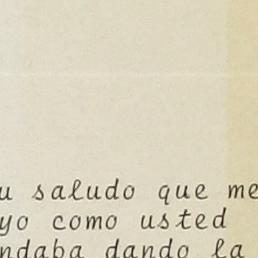 u saludo que me
yo como usted
ndaba dando la